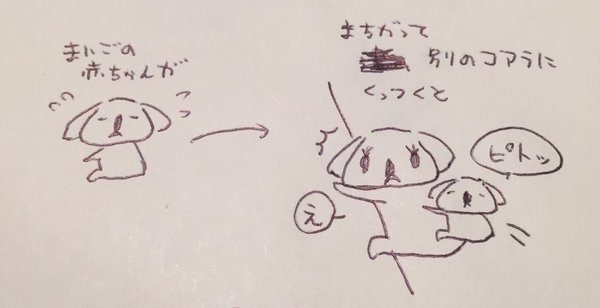 まいごの
赤ちゃんが
まちがって
別のコアラに
くっつくと
ピトッ
え